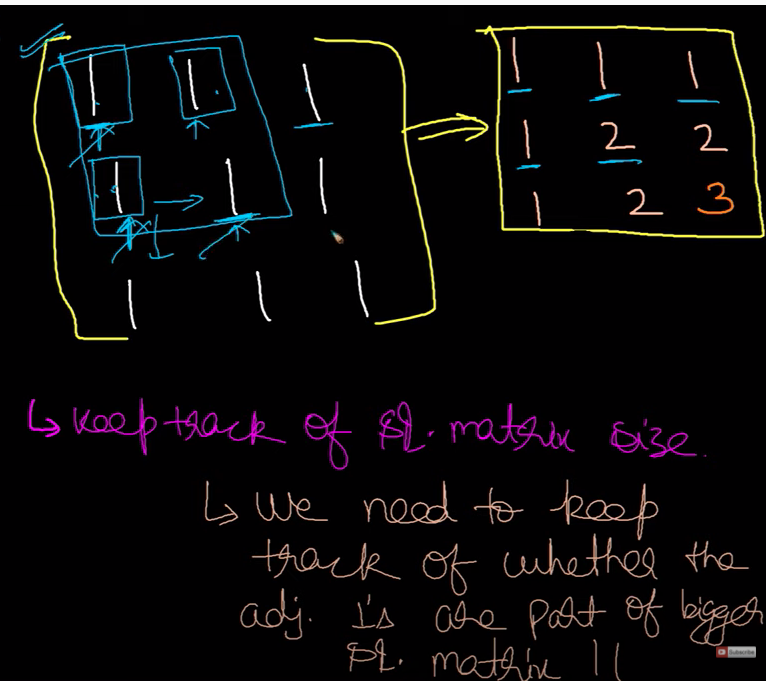 1 1 1 1 1 1
1 1 1 1 2 2
1 1 1 1 2 3
↳ keep track of sq. matrix size.
↳ We need to keep
track of whether the
adj. 1's are part of bigger
sq. matrix !!
Subscribe